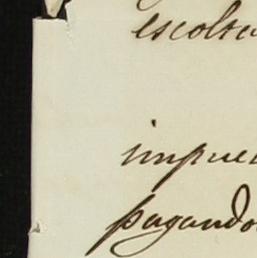 escolta
impues
pagando